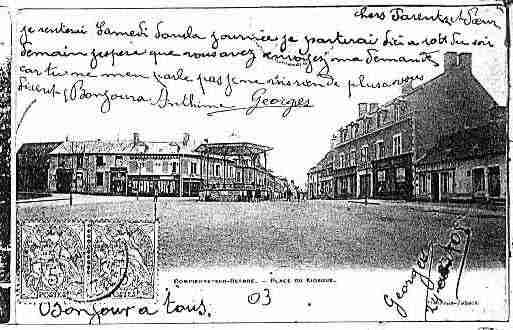 chers Parents et Sœur
je renterai Samedi dans la journée je partirai d'ici a 10h du soir
demain j'espère que vous avez envoyez ma demande
car tu ne m'en parle pas je ne vois rien de plus a vous
Bonjour a Anthime Georges
DOMPIERRE-SUR-BESBRE. — PLACE DU KIOSQUE.
Bonjour a tous.
03
Georges